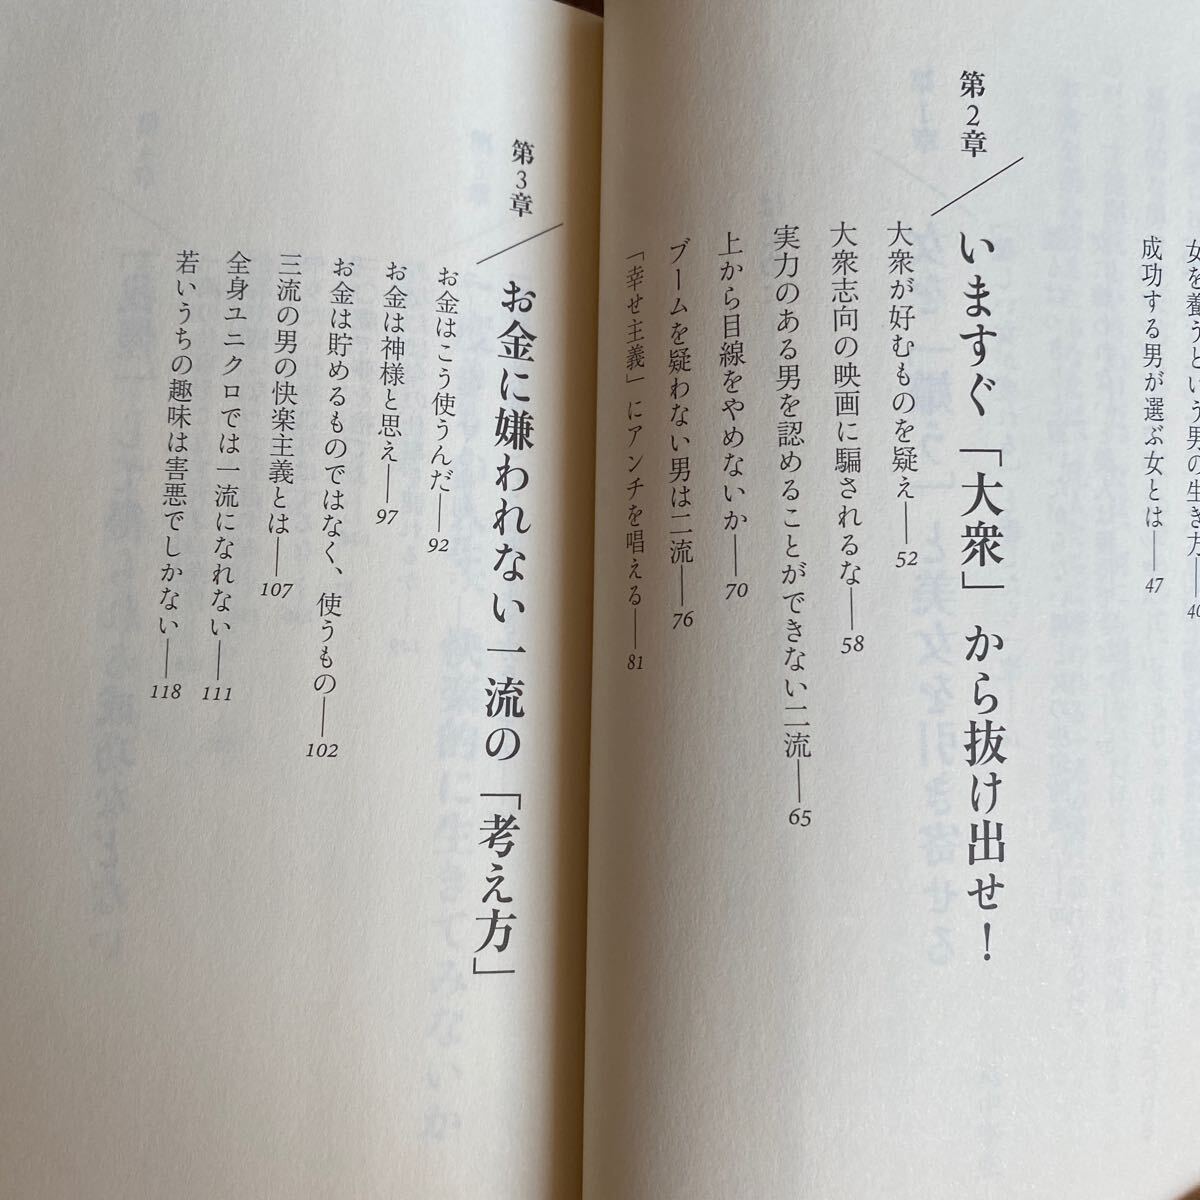 女を養うという男の生き方――40
成功する男が選ぶ女とは――47
第2章
いますぐ「大衆」から抜け出せ!
大衆が好むものを疑え――52
大衆志向の映画に騙されるな――58
実力のある男を認めることができない二流――65
上から目線をやめないか――70
ブームを疑わない男は二流――76
「幸せ主義」にアンチを唱える――81
第3章
お金に嫌われない一流の「考え方」
お金はこう使うんだ――92
お金は神様と思え――97
お金は貯めるものではなく、使うもの――102
三流の男の快楽主義とは――107
全身ユニクロでは一流になれない――111
若いうちの趣味は害悪でしかない――118